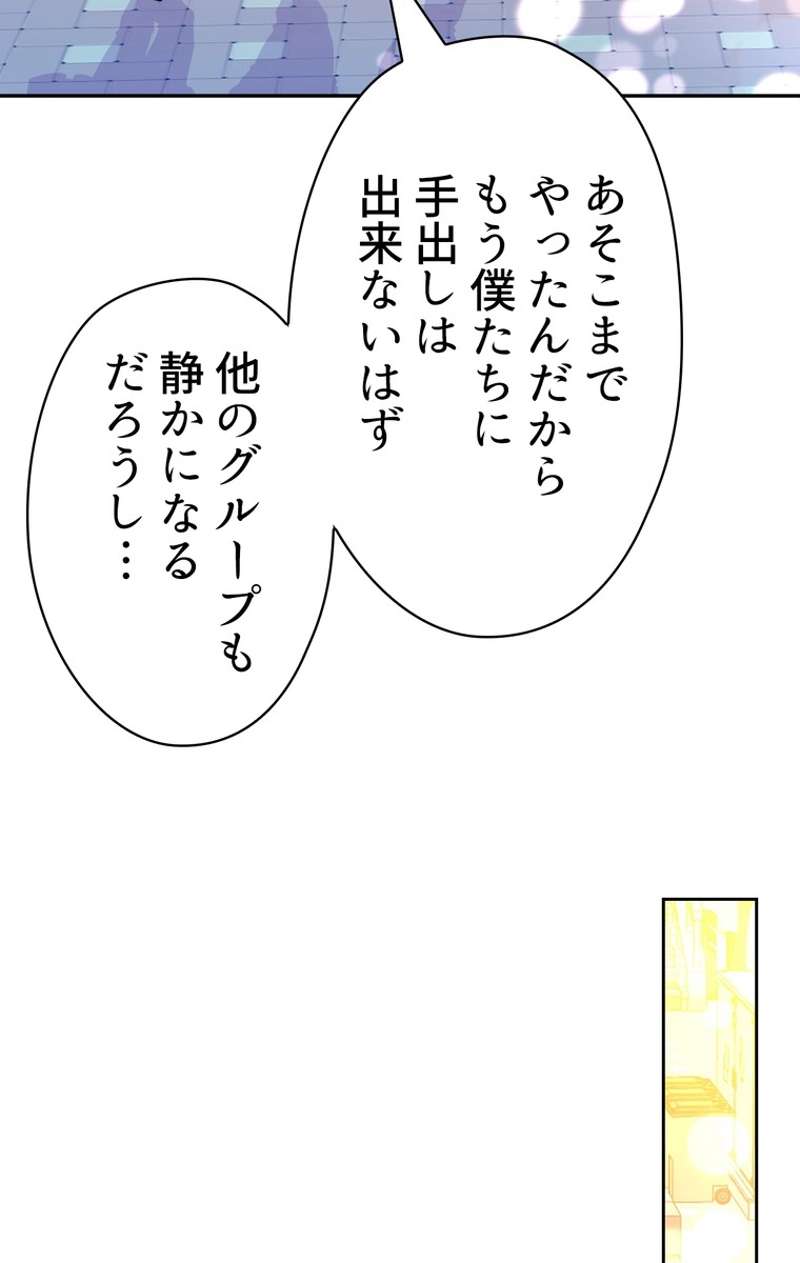 あそこまで
やったんだから
もう僕たちに
手出しは
出来ないはず
他のグループも
静かになる
だろうし…